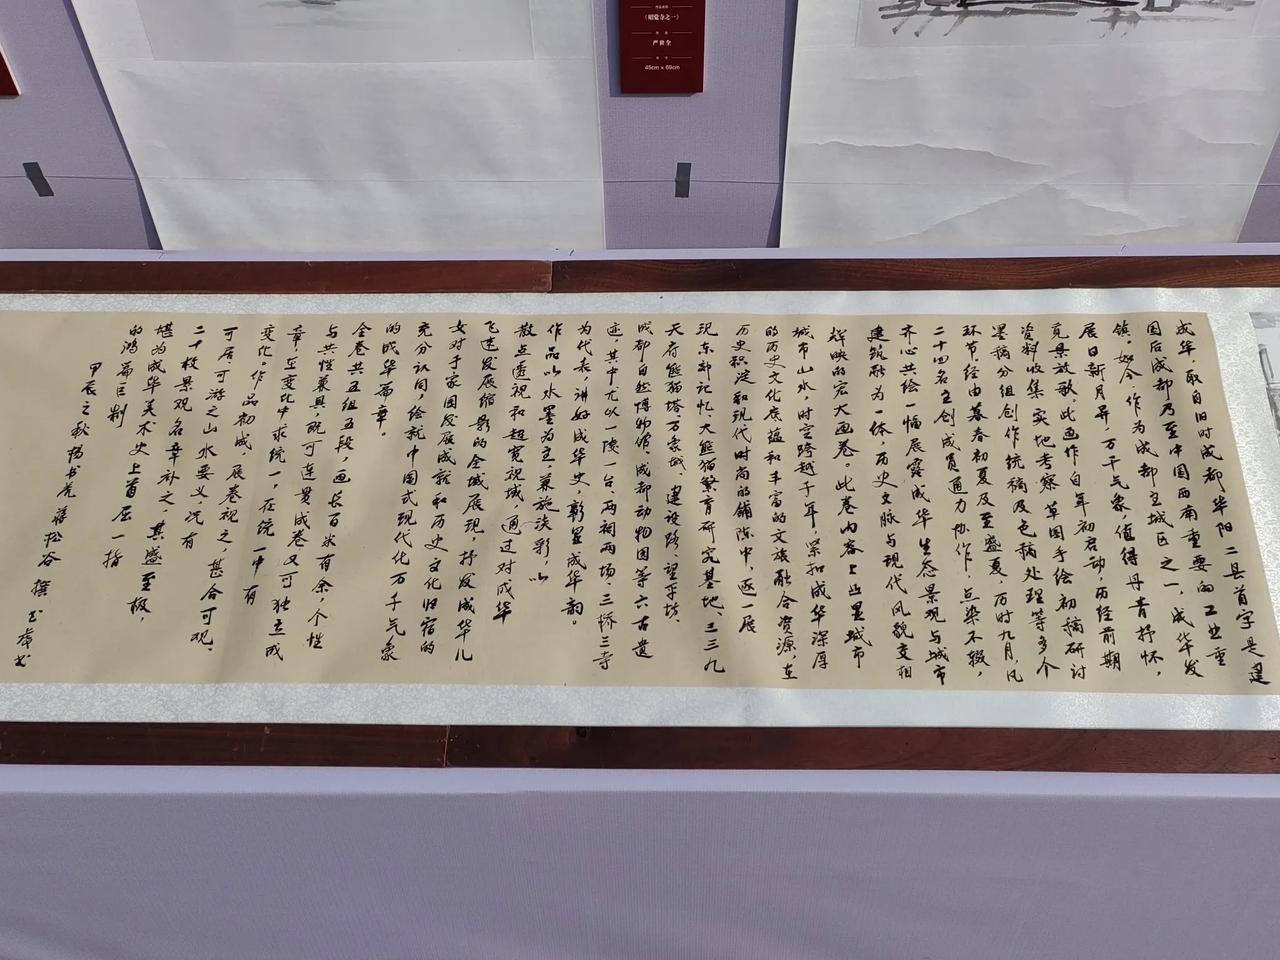 《昭觉寺之一》
严世全
45cm×69cm
成华，取自旧时成都华阳二县首字是建
国后成都乃至中国西南重要的工业重
镇。如今，作为成都主城区之一，成华发
展日新月异，万千气象，值得丹青抒怀，
览景放歌。此画作自年初启动，历经前期
资料收集、实地考察、草图手绘初稿研讨
墨稿分组创作统稿及色稿处理等多个
环节，经由暮春初夏及至盛夏，历时九月，凡
二十四名主创成员通力协作，点染不辍，
齐心共绘一幅展露成华生态景观与城市
建筑融为一体，历史文脉与现代风貌交相
辉映的宏大画卷。此卷内容上凸显城市
城市山水，时空跨越千年，紧扣成华深厚
的历史文化底蕴和丰富的文旅融合资源，在
历史积淀和现代时尚的铺陈中，逐一展
现东郊记忆、大熊猫繁育研究基地、三三九
天府熊猫塔、万象城、建设路、望平坊、
成都自然博物馆、成都动物园等六古遗
迹，其中尤以一陵一台、两祠两场、三桥三寺
为代表，讲好成华史，彰显成华韵。
作品以水墨为主，兼施淡彩，以
散点透视和超宽视域，通过对成华
飞速发展缩影的全域展现，抒发成华儿
女对于家国发展成就和历史文化归宿的
充分认同，绘就中国式现代化万千气象
的成华篇章。
全卷共五组五段，画长百米有余，个性
与共性兼具，既可连贯成卷又可独立成
章，在变化中求统一，在统一中有
变化。作品初成，展卷视之，甚合可观、
可居可游之山水要义，况有
二十枚景观名章补之，其盛至极，
堪为成华美术史上首屈一指
的鸿篇巨制
甲辰之秋 书 蒋松谷撰